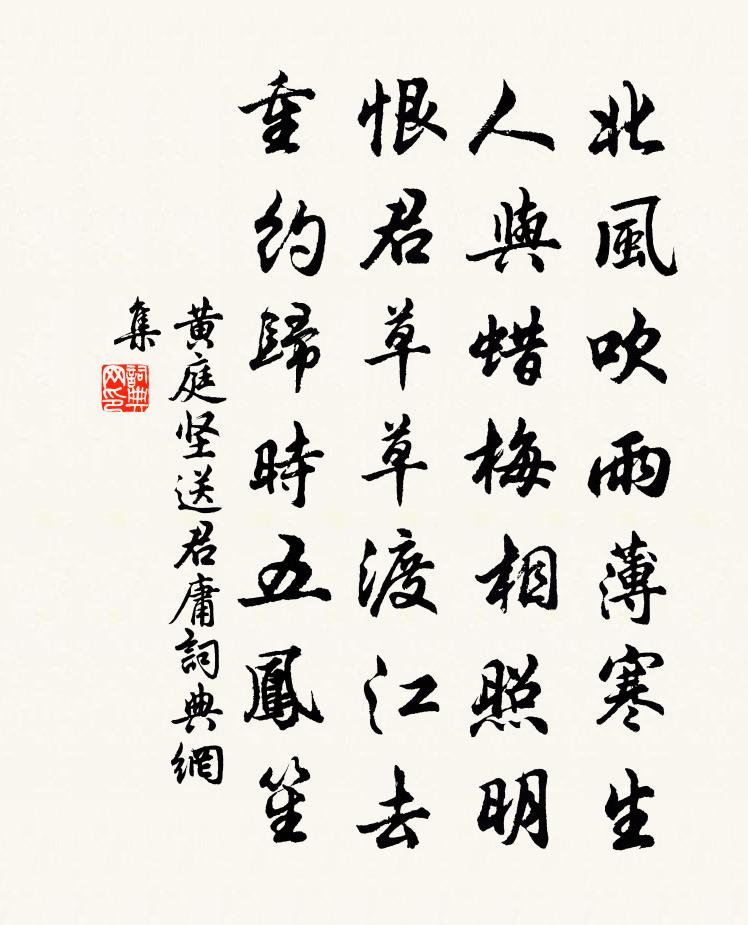 北風吹雨薄寒生
人與蜡梅相照明
恨君草草渡江去
重約歸時五鳳笙
黄庭坚送君庸詞典網
集
詞典
网印